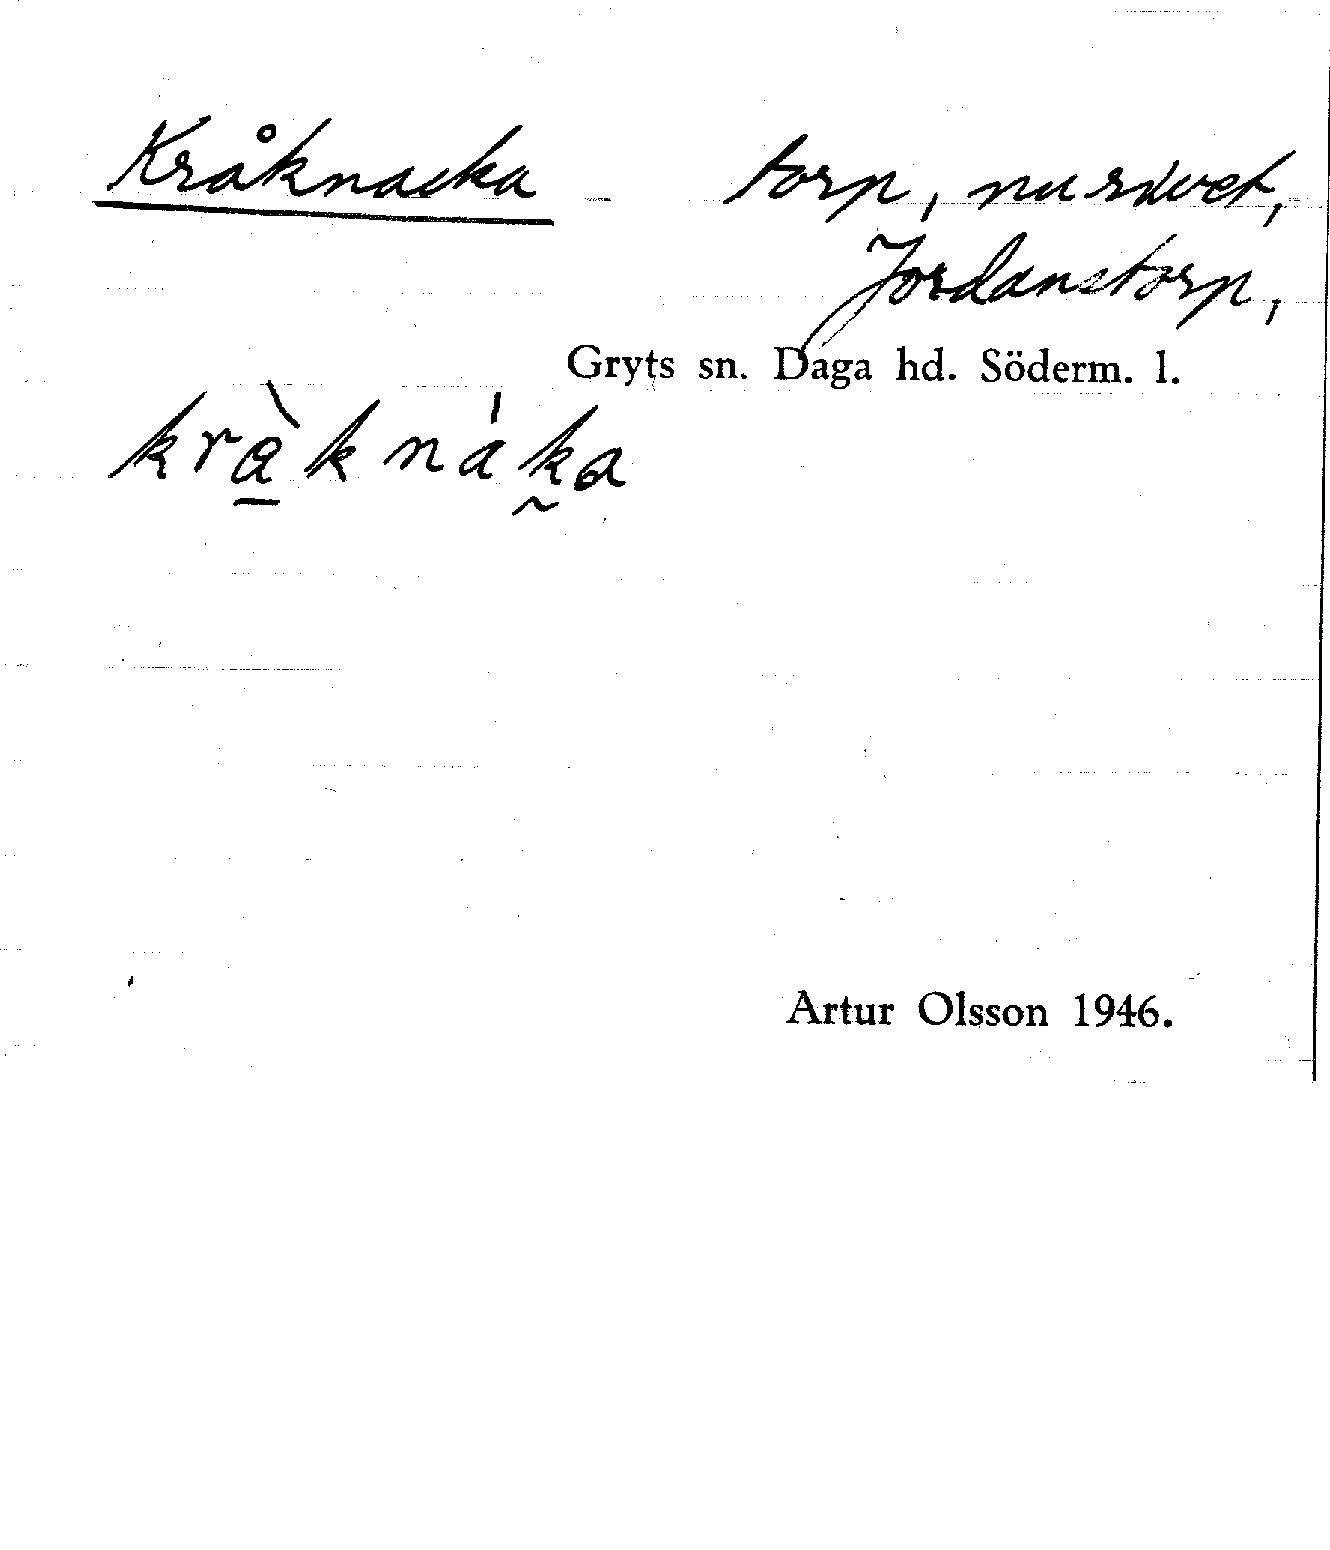 Kråknacka torp, nu rivet,
Jordanstorp,
Gryts sn. Daga hd. Söderm. l.
krà̱knák̰a
Artur Olsson 1946.